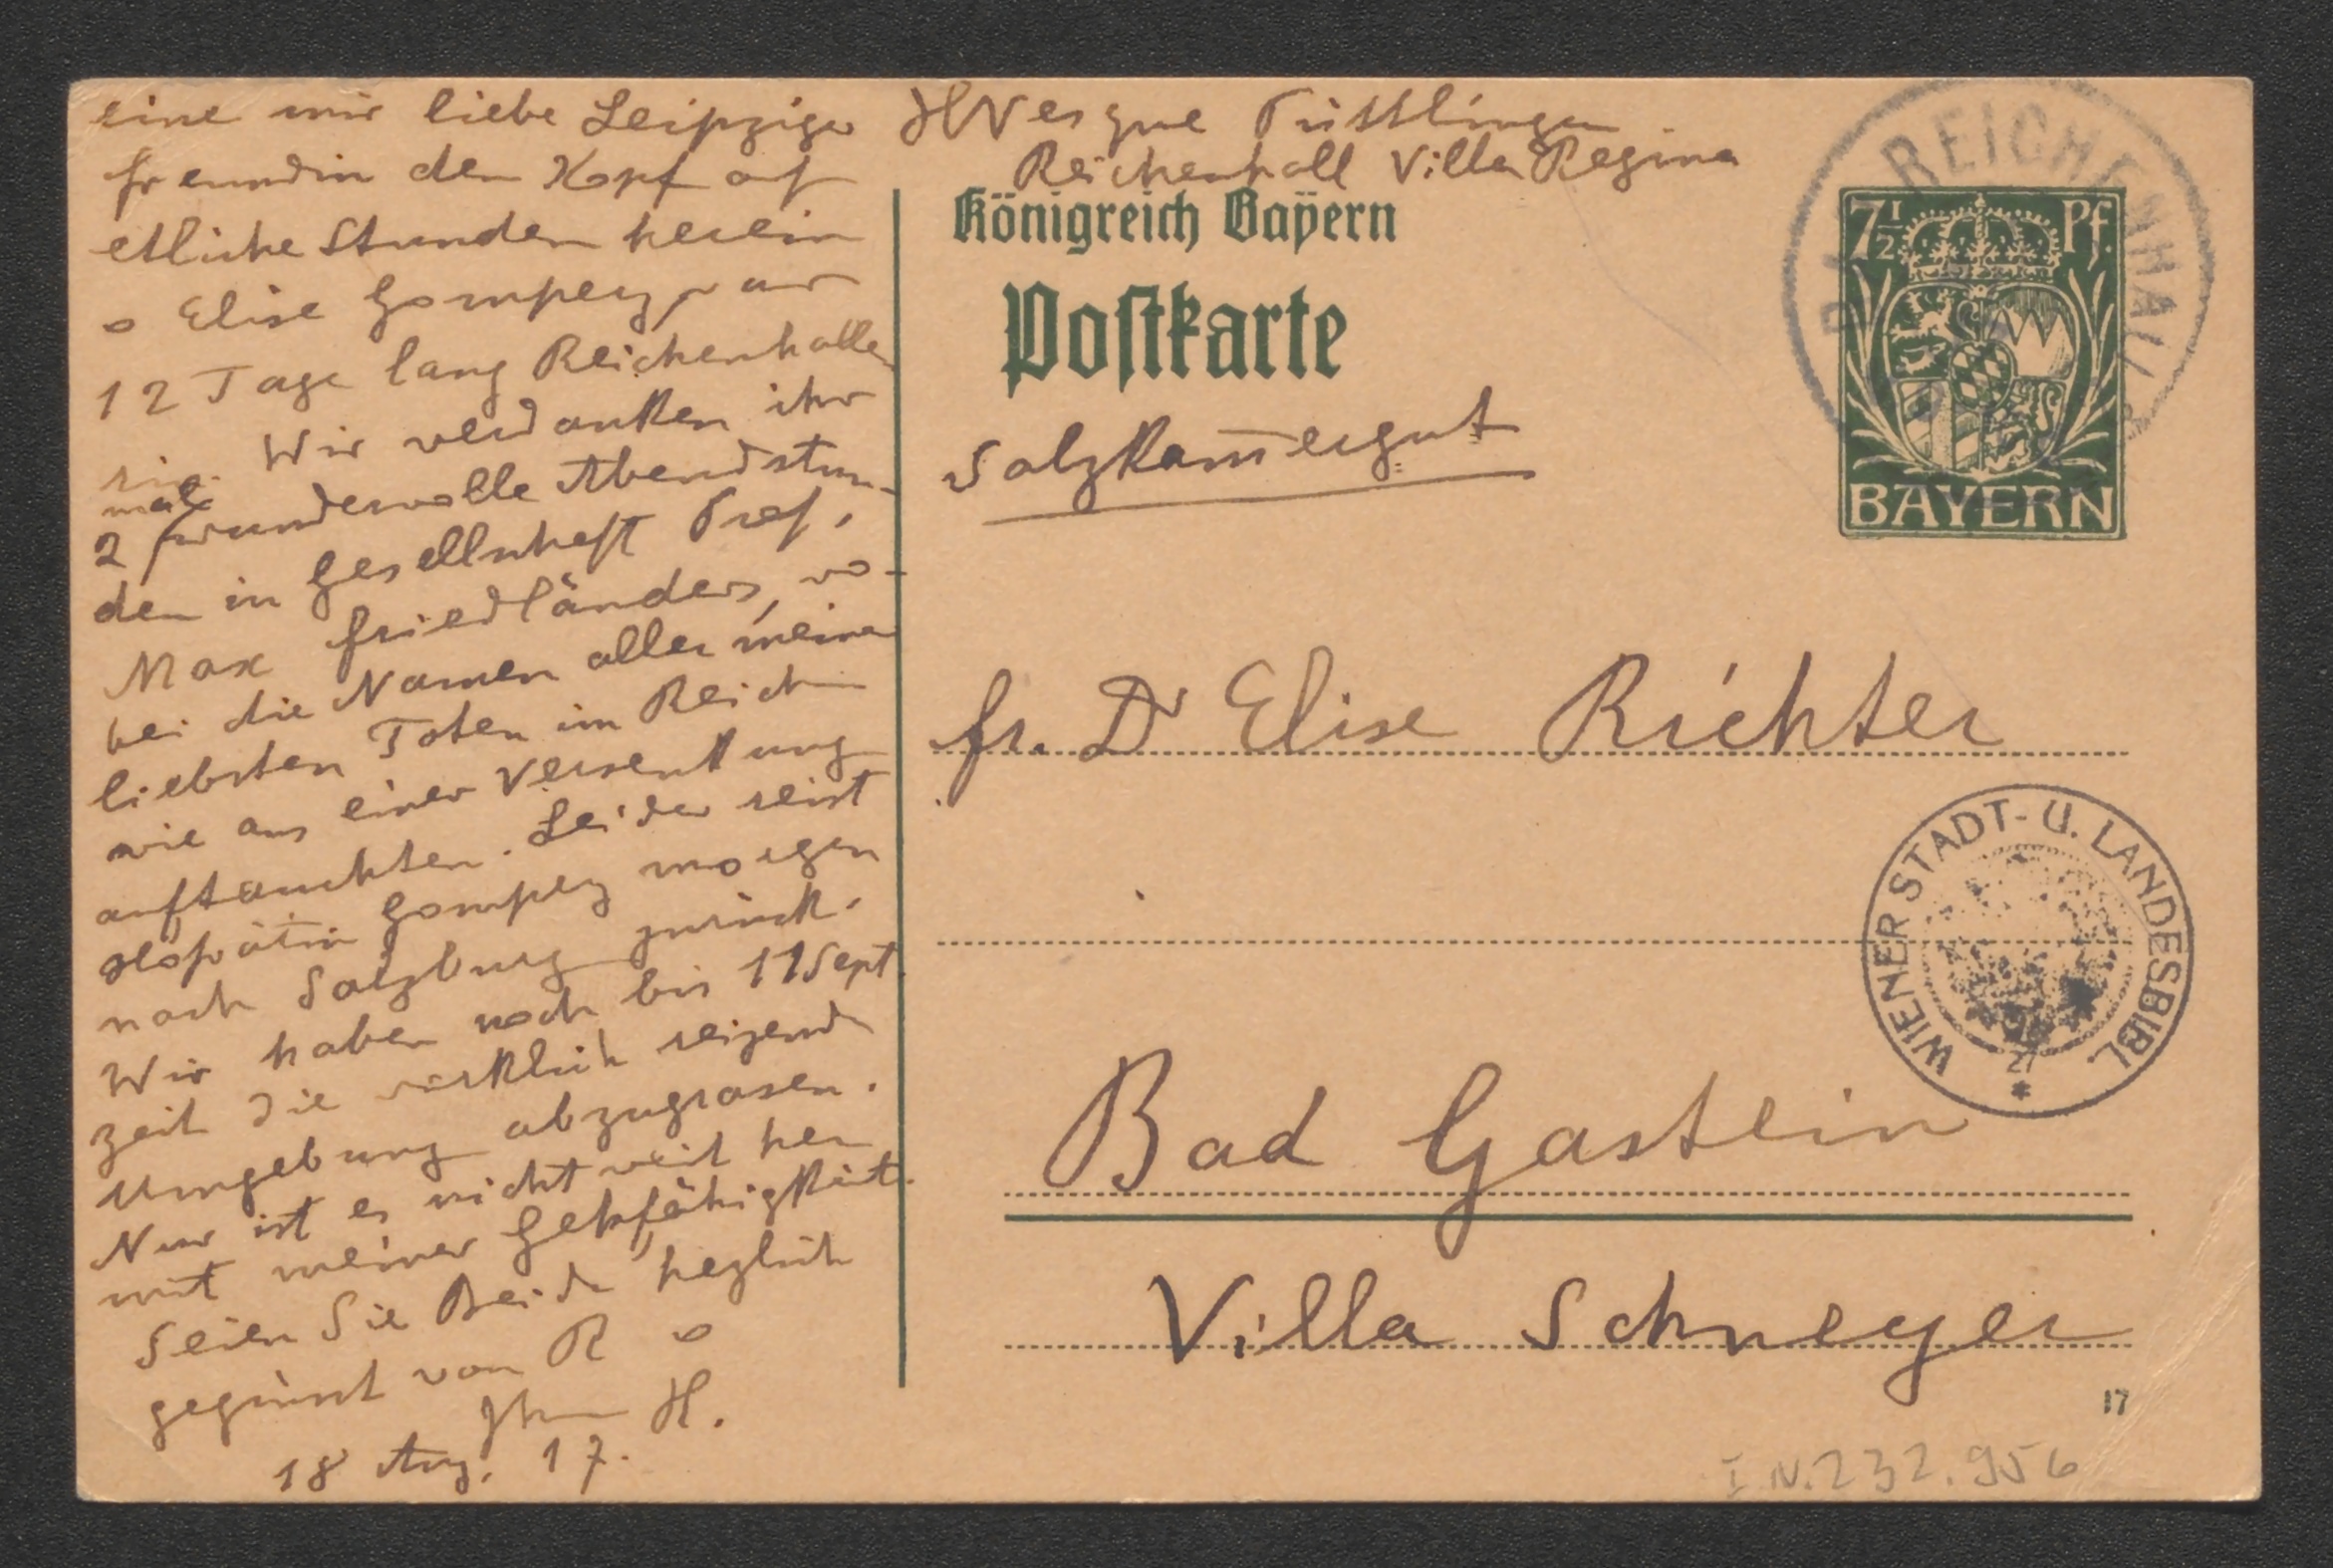 eine mir liebe Leipziger
Freundin den Kopf auf
etliche Stunden herein
o Elise Gomperz war
12 Tage lang Reichenhalle-
rin. Wir verdanken ihr
mal
2 wundervolle Abendstun-
den in Gesellschaft Prof.
Max Friedländers, wo-
bei die Namen aller meine
liebsten Toten im Reich
wie aus einer Versenkung
auftauchten. Leider reist
Hofrätin Gomperz morgen
nach Salzburg zurück.
Wir haben noch bis 11 Sept
Zeit die wirklich reizende
Umgebung abzugrasen.
Nur ist es nicht weit her
mit meiner Gehfähigkeit.
Seien Sie Beide herzlich
gegrüsst von R o
Ihrer H.
18 Aug. 17.
HVesque Püttlingen
Reichenhall Villa Regina
Königreich Bayern
Postkarte
Salzkam̅ergut
BAD REICHENHALL
7½ Pf.
BAYERN
Fr. Dr Elise Richter
WIENER STADT- U. LANDESBIBL.
27
Bad Gastein
Villa Schneyer
17
I.N. 232.956